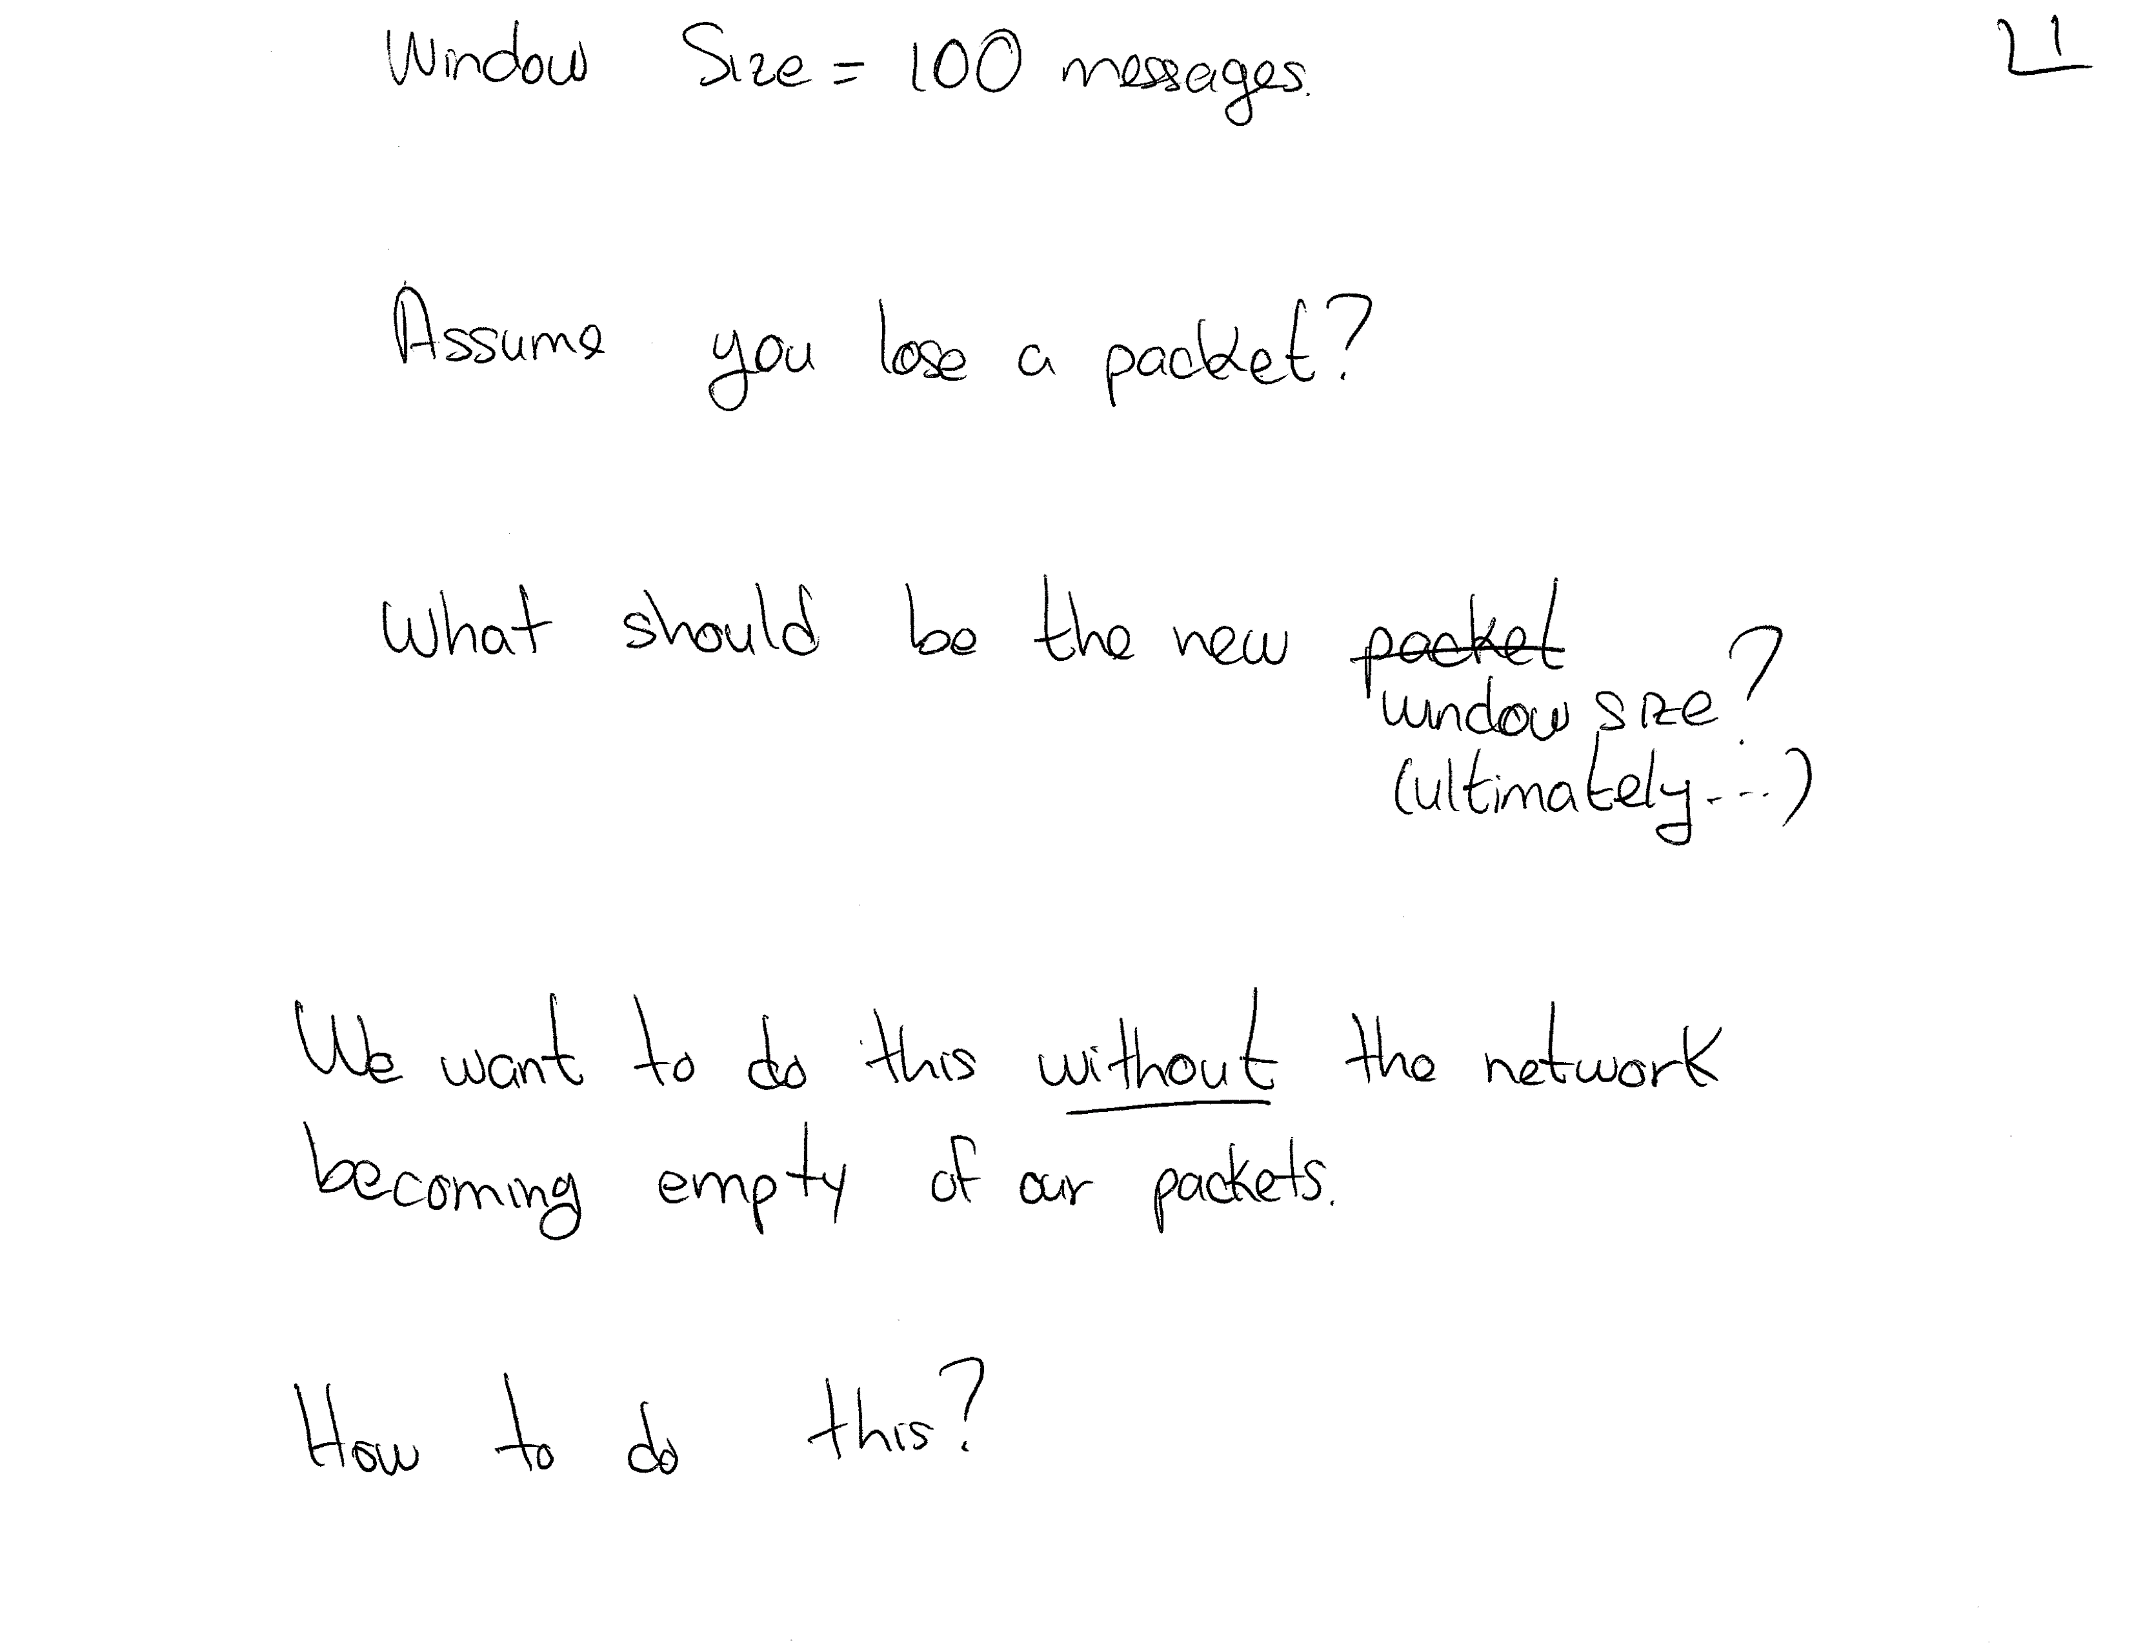 21
Window Size = 100 messages.
Assume you lose a packet?
What should be the new packet
window size?
(ultimately....)
We want to do this without the network
becoming empty of our packets.
How to do this?